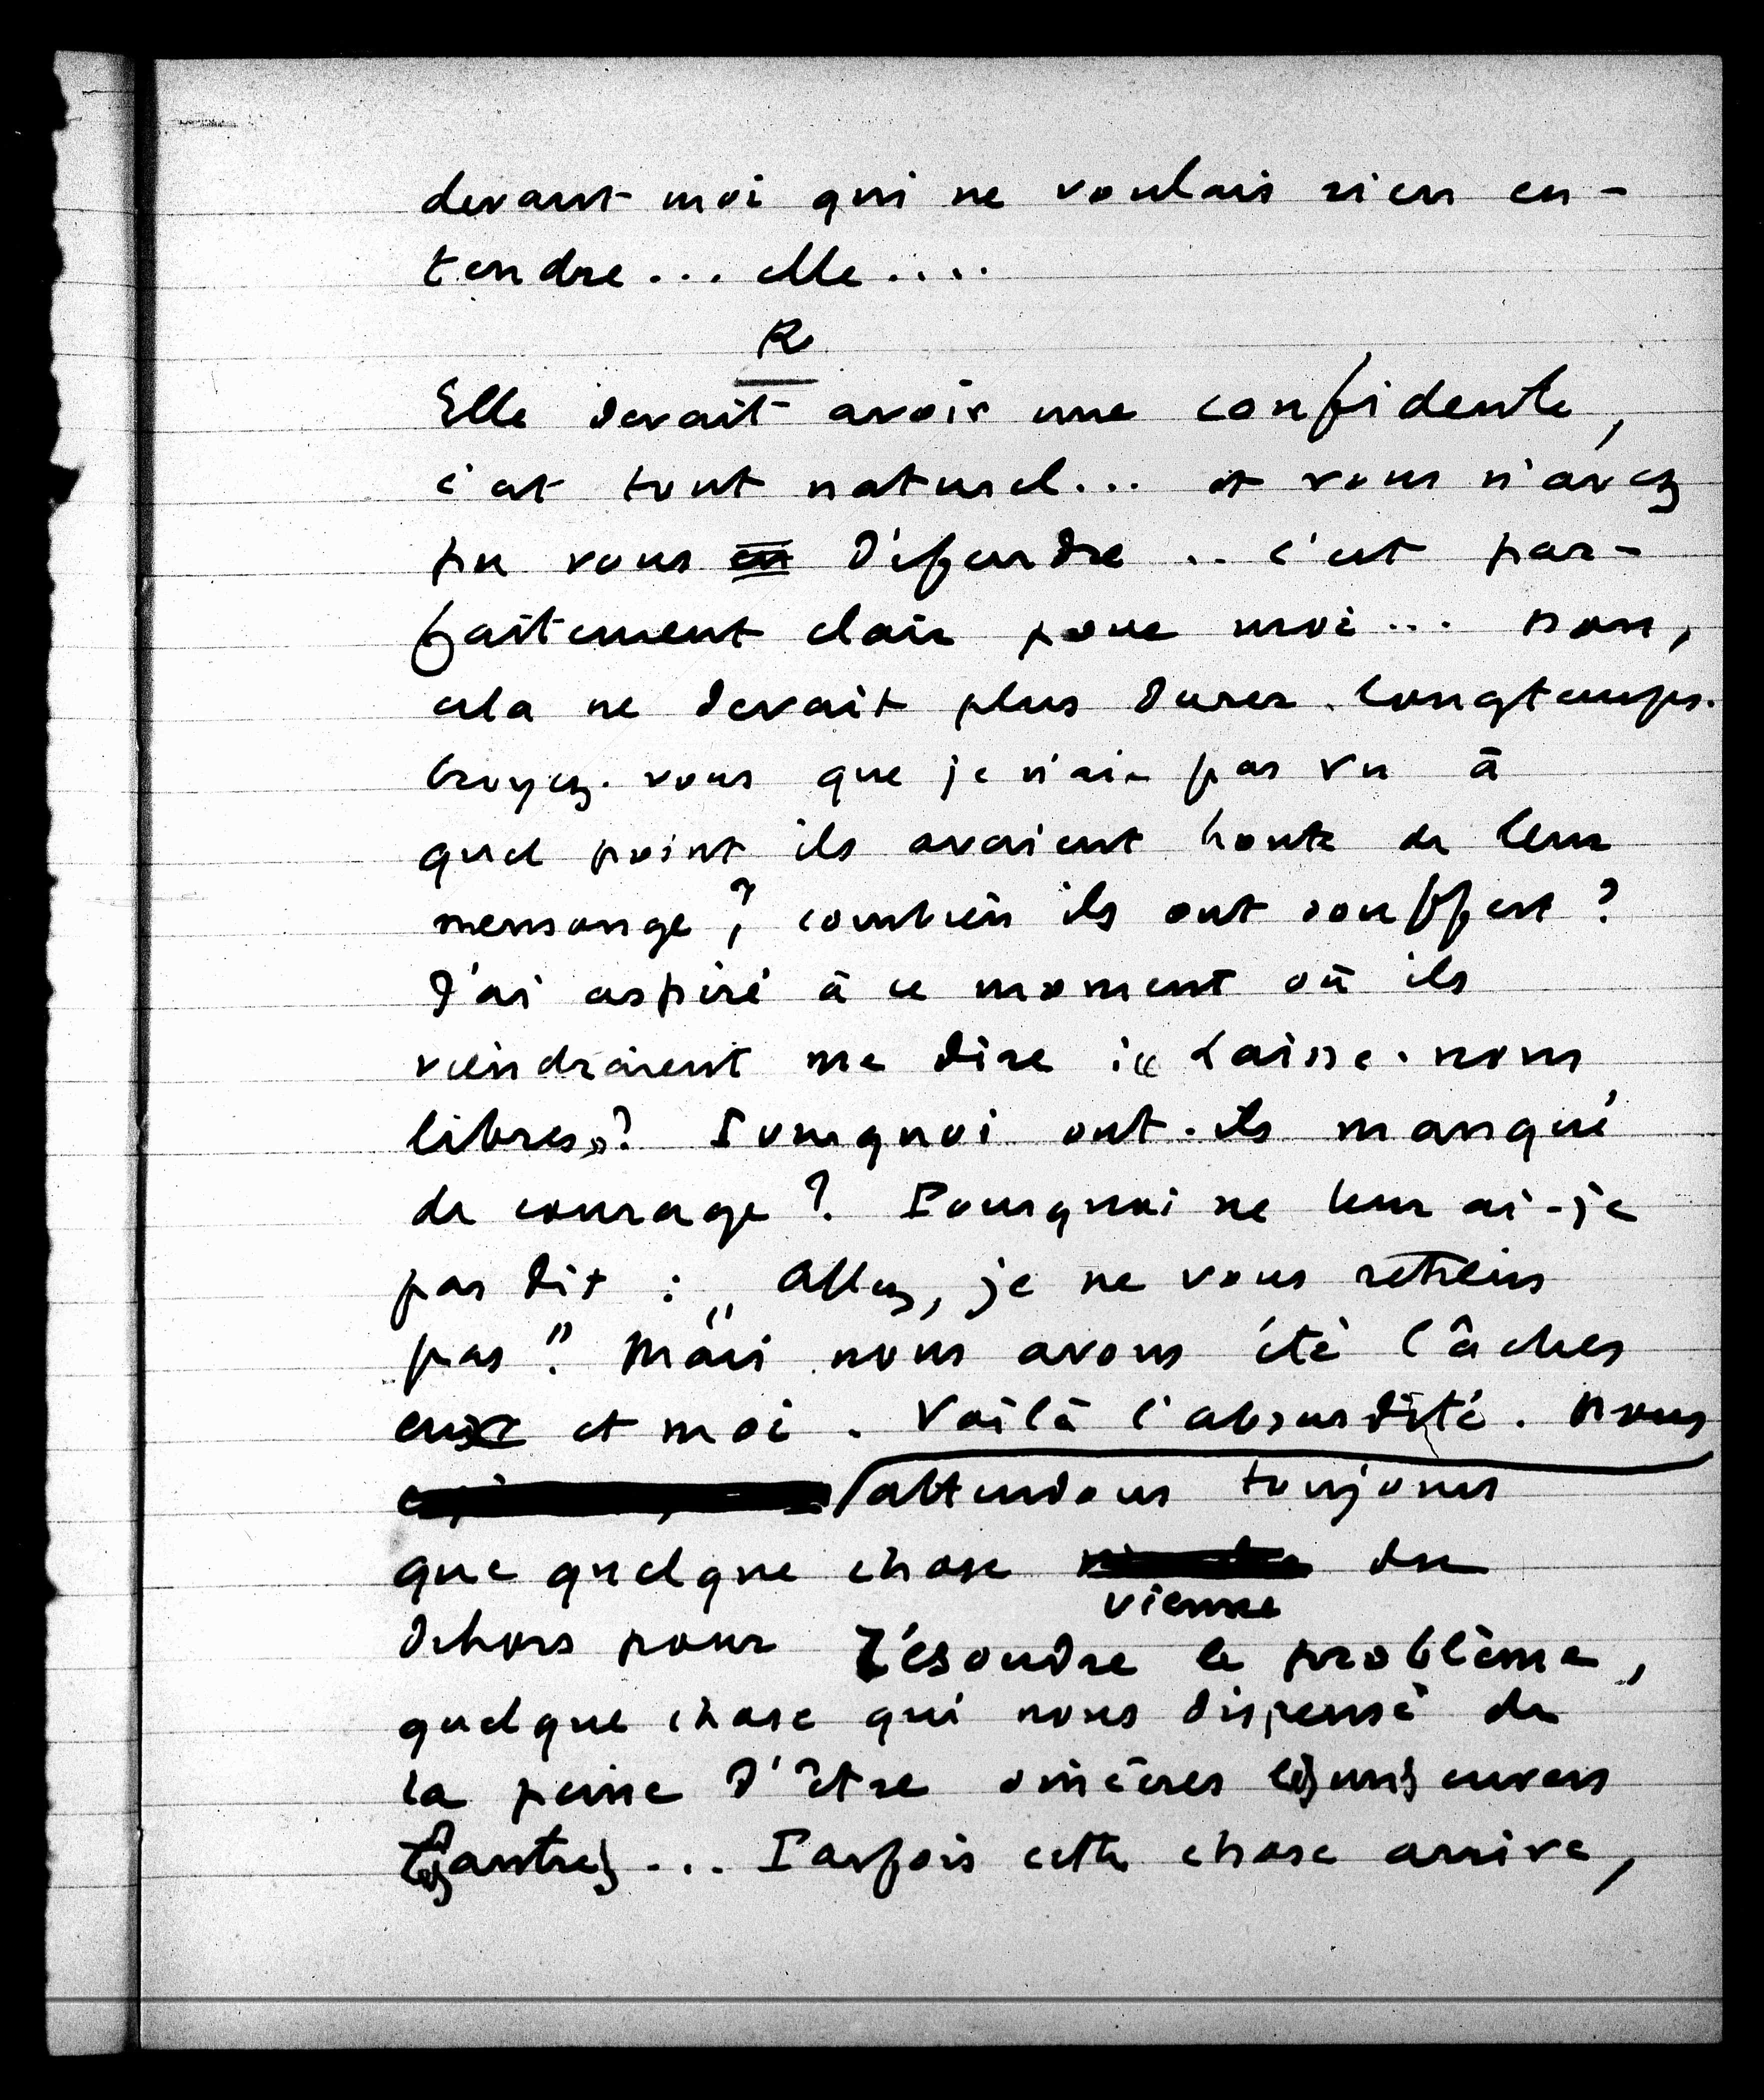 devant moi qui ne voulais rien en-
tendre... elle....
R
Elle devait avoir une confidente,
c'est tout naturel... et vous n'avez
pu vous en défendre .. c'est par-
faitement clair pour moi... non,
cela ne devait plus durer longtemps.
Croyez-vous que je n'ai pas vu à
quel point ils avaient honte de leur
mensonge, ? combien ils ont souffert ?
J'ai aspiré à ce moment où ils
viendraient me dire : « Laisse-nous
libres » ? Pourquoi ont-ils manqué
de courage ? Pourquoi ne leur ai-je
pas dit : „ Allez, je ne vous retiens
pas ". Mais nous avons été lâches
eux et moi. Voilà l'absurdité. Nous
attendons toujours
que quelque chose du
vienne
dehors pour résoudre le problème,
quelque chose qui nous dispense de
la peine d'être sincères les uns envers
les autres... Parfois cette chose arrive,